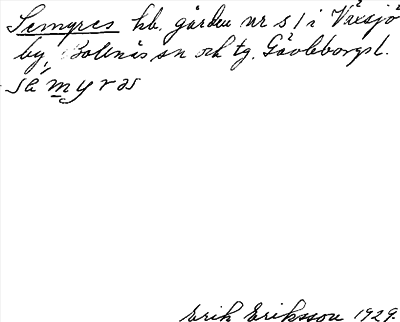 Semgres hb. gården nr 51 i Växsjö
by, Bollnäs sn och tg. Gävleborgsl.
sämyras
Erik Eriksson 1929.